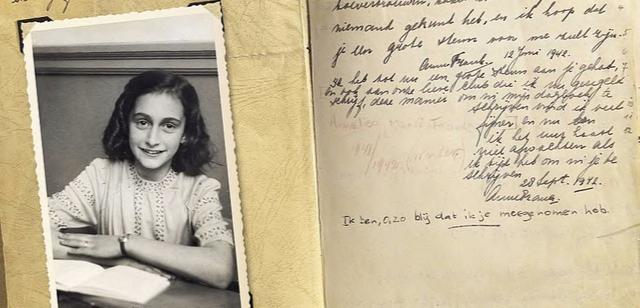 niemand gekund heb, en ik hoop dat
je een grote steun voor me zult zijn.
Anne Frank. 12 Juni 1942.
Ik heb tot nu een grote steun aan je gehad,
en ook aan onze lieve club die ik nu geregeld
schrijf, deze manier om in mijn dagboek te
schrijven vind ik veel
fijner en nu kan
ik het uur haast
niet afwachten als
ik tijd heb om in je te
schrijven.
28 Sept. 1942.
Anne Frank.
Ik ben, O, zo blij dat ik je meegenomen heb.